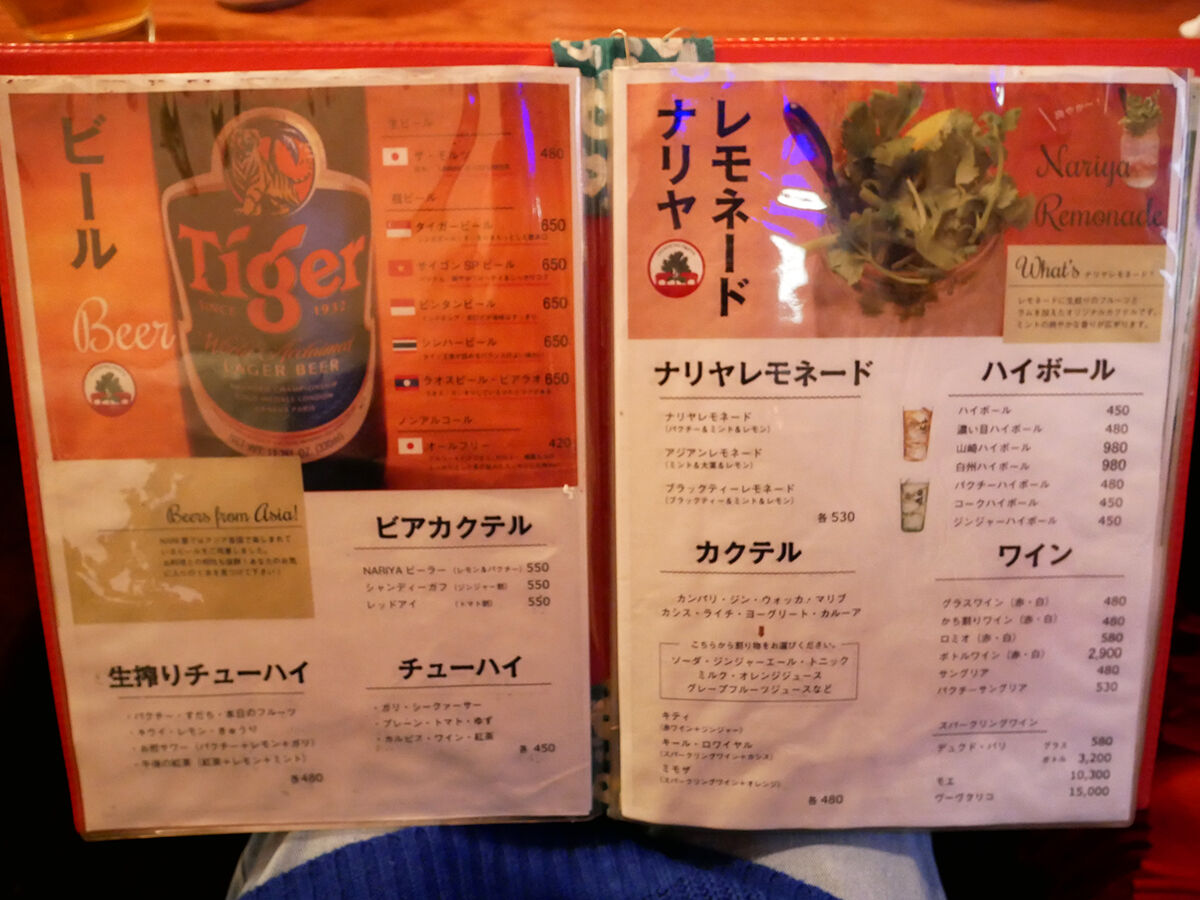 ビール
Beer
Tiger
SINCE 1932
World Acclaimed
LAGER BEER
生ビール
ザ・モルツ 480
瓶ビール
タイガービール 650
サイゴンSPビール 650
ビンタンビール 650
シンハービール 650
ラオスビール・ビアラオ 650
ノンアルコール
オールフリー 420
Beers from Asia!
ビアカクテル
NARIYA ビーラー (レモン&パクチー) 550
シャンディーガフ (ジンジャー割) 550
レッドアイ (トマト割) 550
生搾りチューハイ
・パクチー・すだち・本日のフルーツ
・キウイ・レモン・きゅうり
・お煎サワー (パクチー+レモン+ガリ)
・午後の紅茶 (紅茶+レモン+ミント)
各480
チューハイ
・ガリ・シークァーサー
・プレーン・トマト・ゆず
・カルピス・ワイン・紅茶
各 450
ナリヤ
レモネード
Nariya
Remonade
What's ナリヤレモネード?
レモネードに生絞りのフルーツと
ラムを加えたオリジナルカクテルです。
ミントの爽やかな香りが広がります。
ナリヤレモネード
ナリヤレモネード
(パクチー&ミント&レモン)
アジアンレモネード
(ミント&大葉&レモン)
ブラックティーレモネード
(ブラックティー&ミント&レモン)
各 530
ハイボール
ハイボール 450
濃い目ハイボール 480
山崎ハイボール 980
白州ハイボール 980
パクチーハイボール 480
コークハイボール 450
ジンジャーハイボール 450
カクテル
カンパリ・ジン・ウォッカ・マリブ
カシス・ライチ・ヨーグリート・カルーア
こちらから割り物をお選びください。
ソーダ・ジンジャーエール・トニック
ミルク・オレンジジュース
グレープフルーツジュースなど
キティ
(赤ワイン+ジンジャー)
キール・ロワイヤル
(スパークリングワイン+カシス)
ミモザ
(スパークリングワイン+オレンジ)
各 480
ワイン
グラスワイン (赤・白) 480
かち割りワイン (赤・白) 480
ロミオ (赤・白) 580
ボトルワイン (赤・白) 2,900
サングリア 480
パクチーサングリア 530
スパークリングワイン
デュクド・パリ グラス 580
ボトル 3,200
モエ 10,300
ヴーヴクリコ 15,000